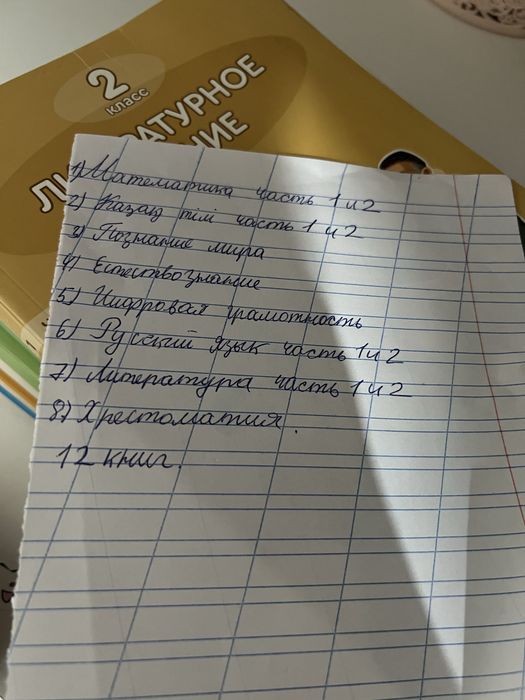 2
класс
ЛИТЕРАТУРНОЕ
1) Математика часть 1 и 2
2) Казақ тілі часть 1 и 2
3) Познание мира
4) Естествознание
5) Цифровая грамотность
6) Русский язык часть 1 и 2
7) Литература часть 1 и 2
8) Хрестоматия.
12 книг.